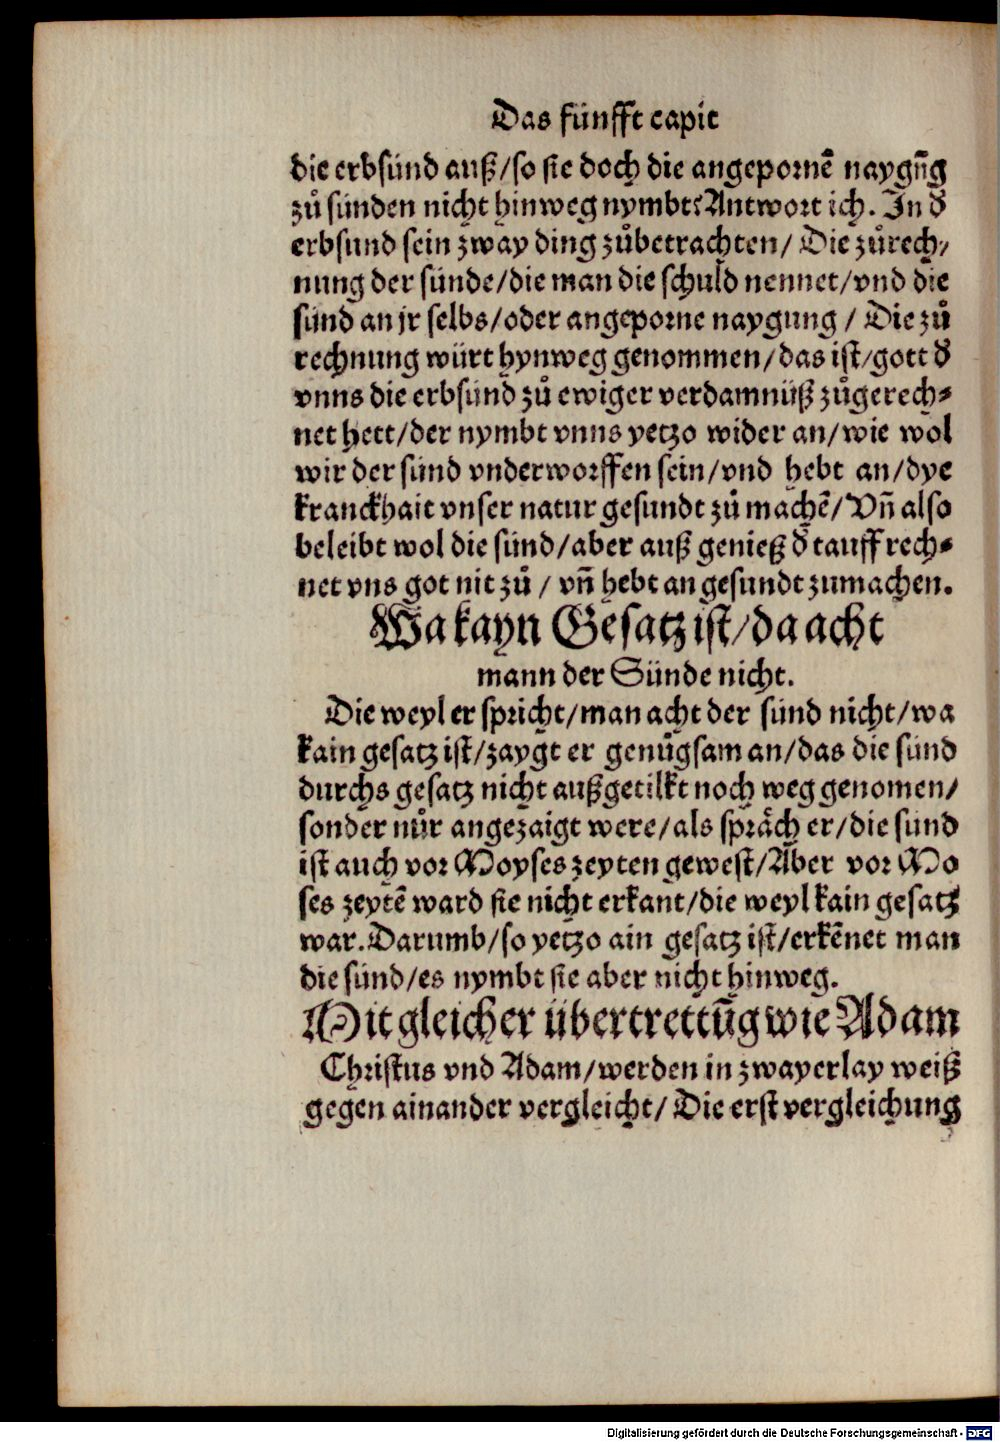 Das fünfft capit
die erbsünd auß/so sie doch die angepornē naygūg
zů sünden nicht hinweg nymbt? Antwort ich. In đ
erbsund sein zway ding zůbetrachten/ Die zůrech/
nung der sünde/die man die schuld nennet/vnd die
sünd an jr selbs/oder angeporne naygung / Die zů
rechnung würt hynweg genommen/das ist/gott đ
vnns die erbsünd zů ewiger verdamnüß zůgerech⸗
net hett/der nymbt vnns yetzo wider an/wie wol
wir der sünd vnderworffen sein/vnd hebt an/dye
kranckhait vnser natur gesundt zů machē/Vn̄ also
beleibt wol die sünd/aber auß genieß đ tauff rech⸗
net vns got nit zů / vn̄ hebt an gesundt zumachen.
Wa kayn Gesatz ist/da acht
mann der Sünde nicht.
Die weyl er spricht/man acht der sünd nicht/wa
kain gesatz ist/zaygt er genůgsam an/das die sünd
durchs gesatz nicht außgetilkt noch weg genomen/
sonder nůr angezaigt were/als spräch er/die sünd
ist auch vor Moyses zeyten gewest/Aber vor Mo
ses zeytē ward sie nicht erkant/die weyl kain gesatz
war. Darumb/so yetzo ain gesatz ist/erkēnet man
die sünd/es nymbt sie aber nicht hinweg.
Mit gleicher übertrettūg wie Adam
Christus vnd Adam/werden in zwayerlay weiß
gegen ainander vergleicht/ Die erst vergleichung
Digitalisierung gefördert durch die Deutsche Forschungsgemeinschaft - DFG